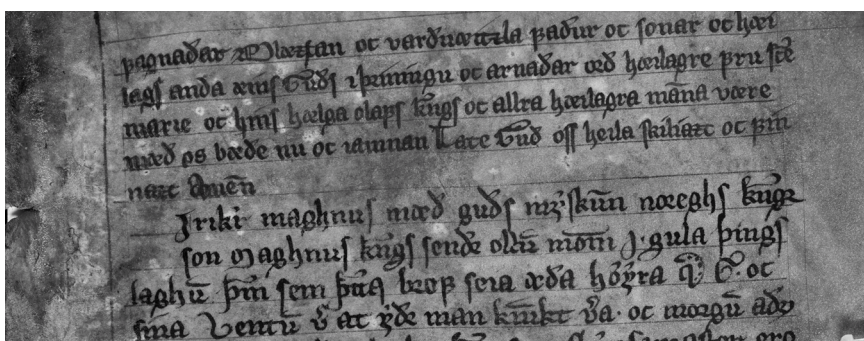 fagnaðar Blæzan oc varðuæizla faður oc sonar oc hæi
lags anda æins Guðs i þriningu oc arnaðar orð hæilagre fru sce
marie oc hins hælga olafs kngs oc allra hæilagra manna være
mæð os bæðe nu oc iamnan Late Guð oss heila skiliazt oc fin
nazt Amen
Jriki maghnus mæð guðs miskun noreghs kngr
son maghnus kngs sende ollum monnum J gula þings
laghum þeim sem þetta bref sea æða høyra Q G oc
sina at yðr man kunnikt oc morgum aðr